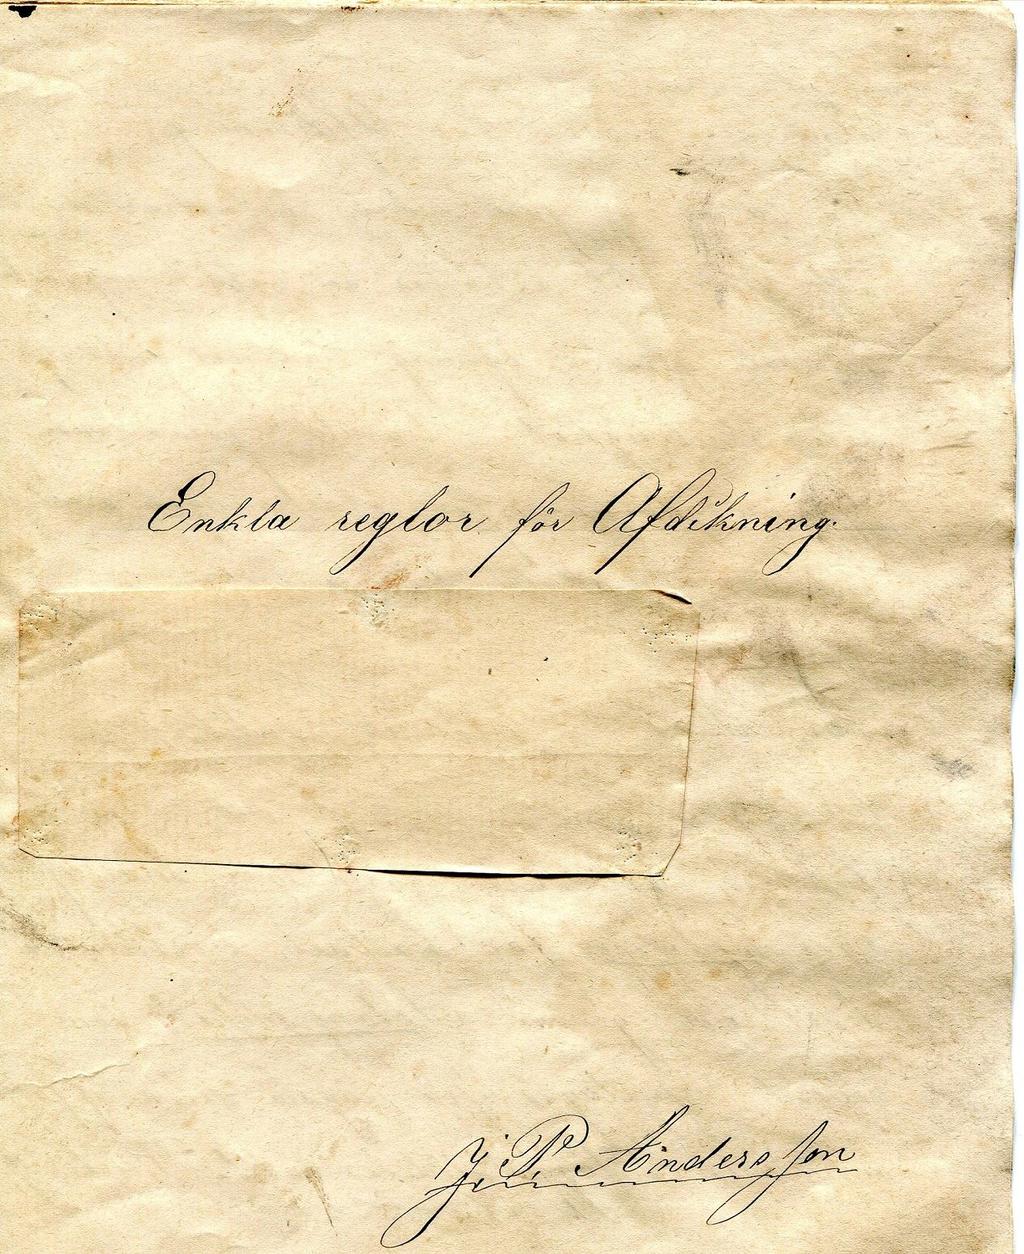 Enkla reglor för Afdikning.
J. P. Andersson